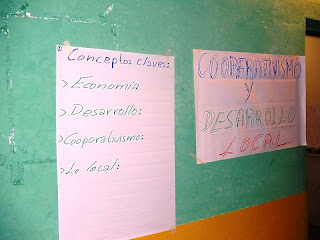 Conceptos claves:
> Economía
> Desarrollo:
> Cooperativismo:
> Lo local:
COOPERATIVISMO
Y
DESARROLLO
LOCAL